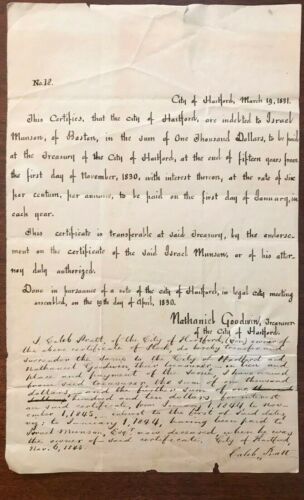 No. 12.
City of Hartford, March 19, 1831.
This Certifies, that the city of Hartford, are indebted to Israel
Munson, of Boston, in the sum of One Thousand Dollars, to be paid
at the Treasury of the City of Hartford, at the end of fifteen years from
the first day of November, 1830, with interest thereon, at the rate of six
per centum, per annum, to be paid on the first day of January, in
each year.
This certificate is transferable at said Treasury, by the endorse-
ment on the certificate of the said Israel Munson, or of his
attorney duly authorized.
Done in pursuance of a vote of the city of Hartford, in legal city meeting
assembled, on the 19th day of April, 1830.
Nathaniel Goodwin, Treasurer
of the City of Hartford.
I Caleb Pratt, of the City of Hartford, owner of
the above certificate of stock, do hereby transfer and
surrender the same to the City of Hartford and
Nathaniel Goodwin, their treasurer, in lieu and
place and payment of the same, I have received
from said treasurer, the sum of one thousand
dollars, and the further sum of
hundred and ten dollars, for interest
on said certificate, from January 1, 1844, to Nov-
ember 1, 1845. interest to the first of said
viz: to January 1, 1844, having been paid to
Israel Munson, Esqr. now deceased when he was
the owner of said certificate. City of Hartford,
Nov. 6, 1845.
Caleb Pratt